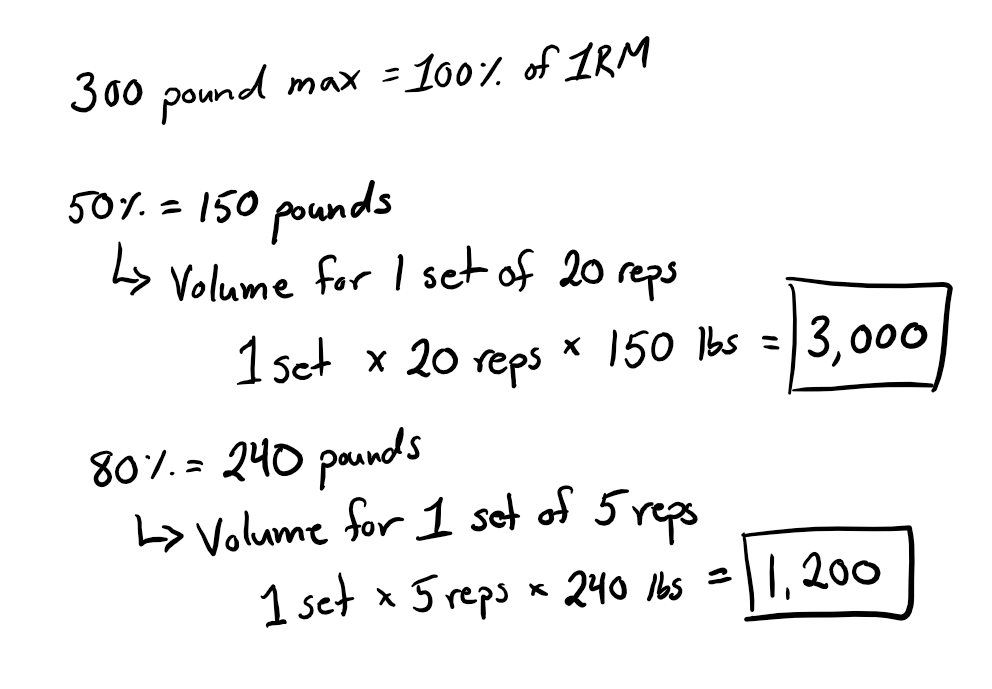 300 pound max = 100% of 1RM
50% = 150 pounds
↳ Volume for 1 set of 20 reps
1 set x 20 reps x 150 lbs = 3,000
80% = 240 pounds
↳ Volume for 1 set of 5 reps
1 set x 5 reps x 240 lbs = 1,200